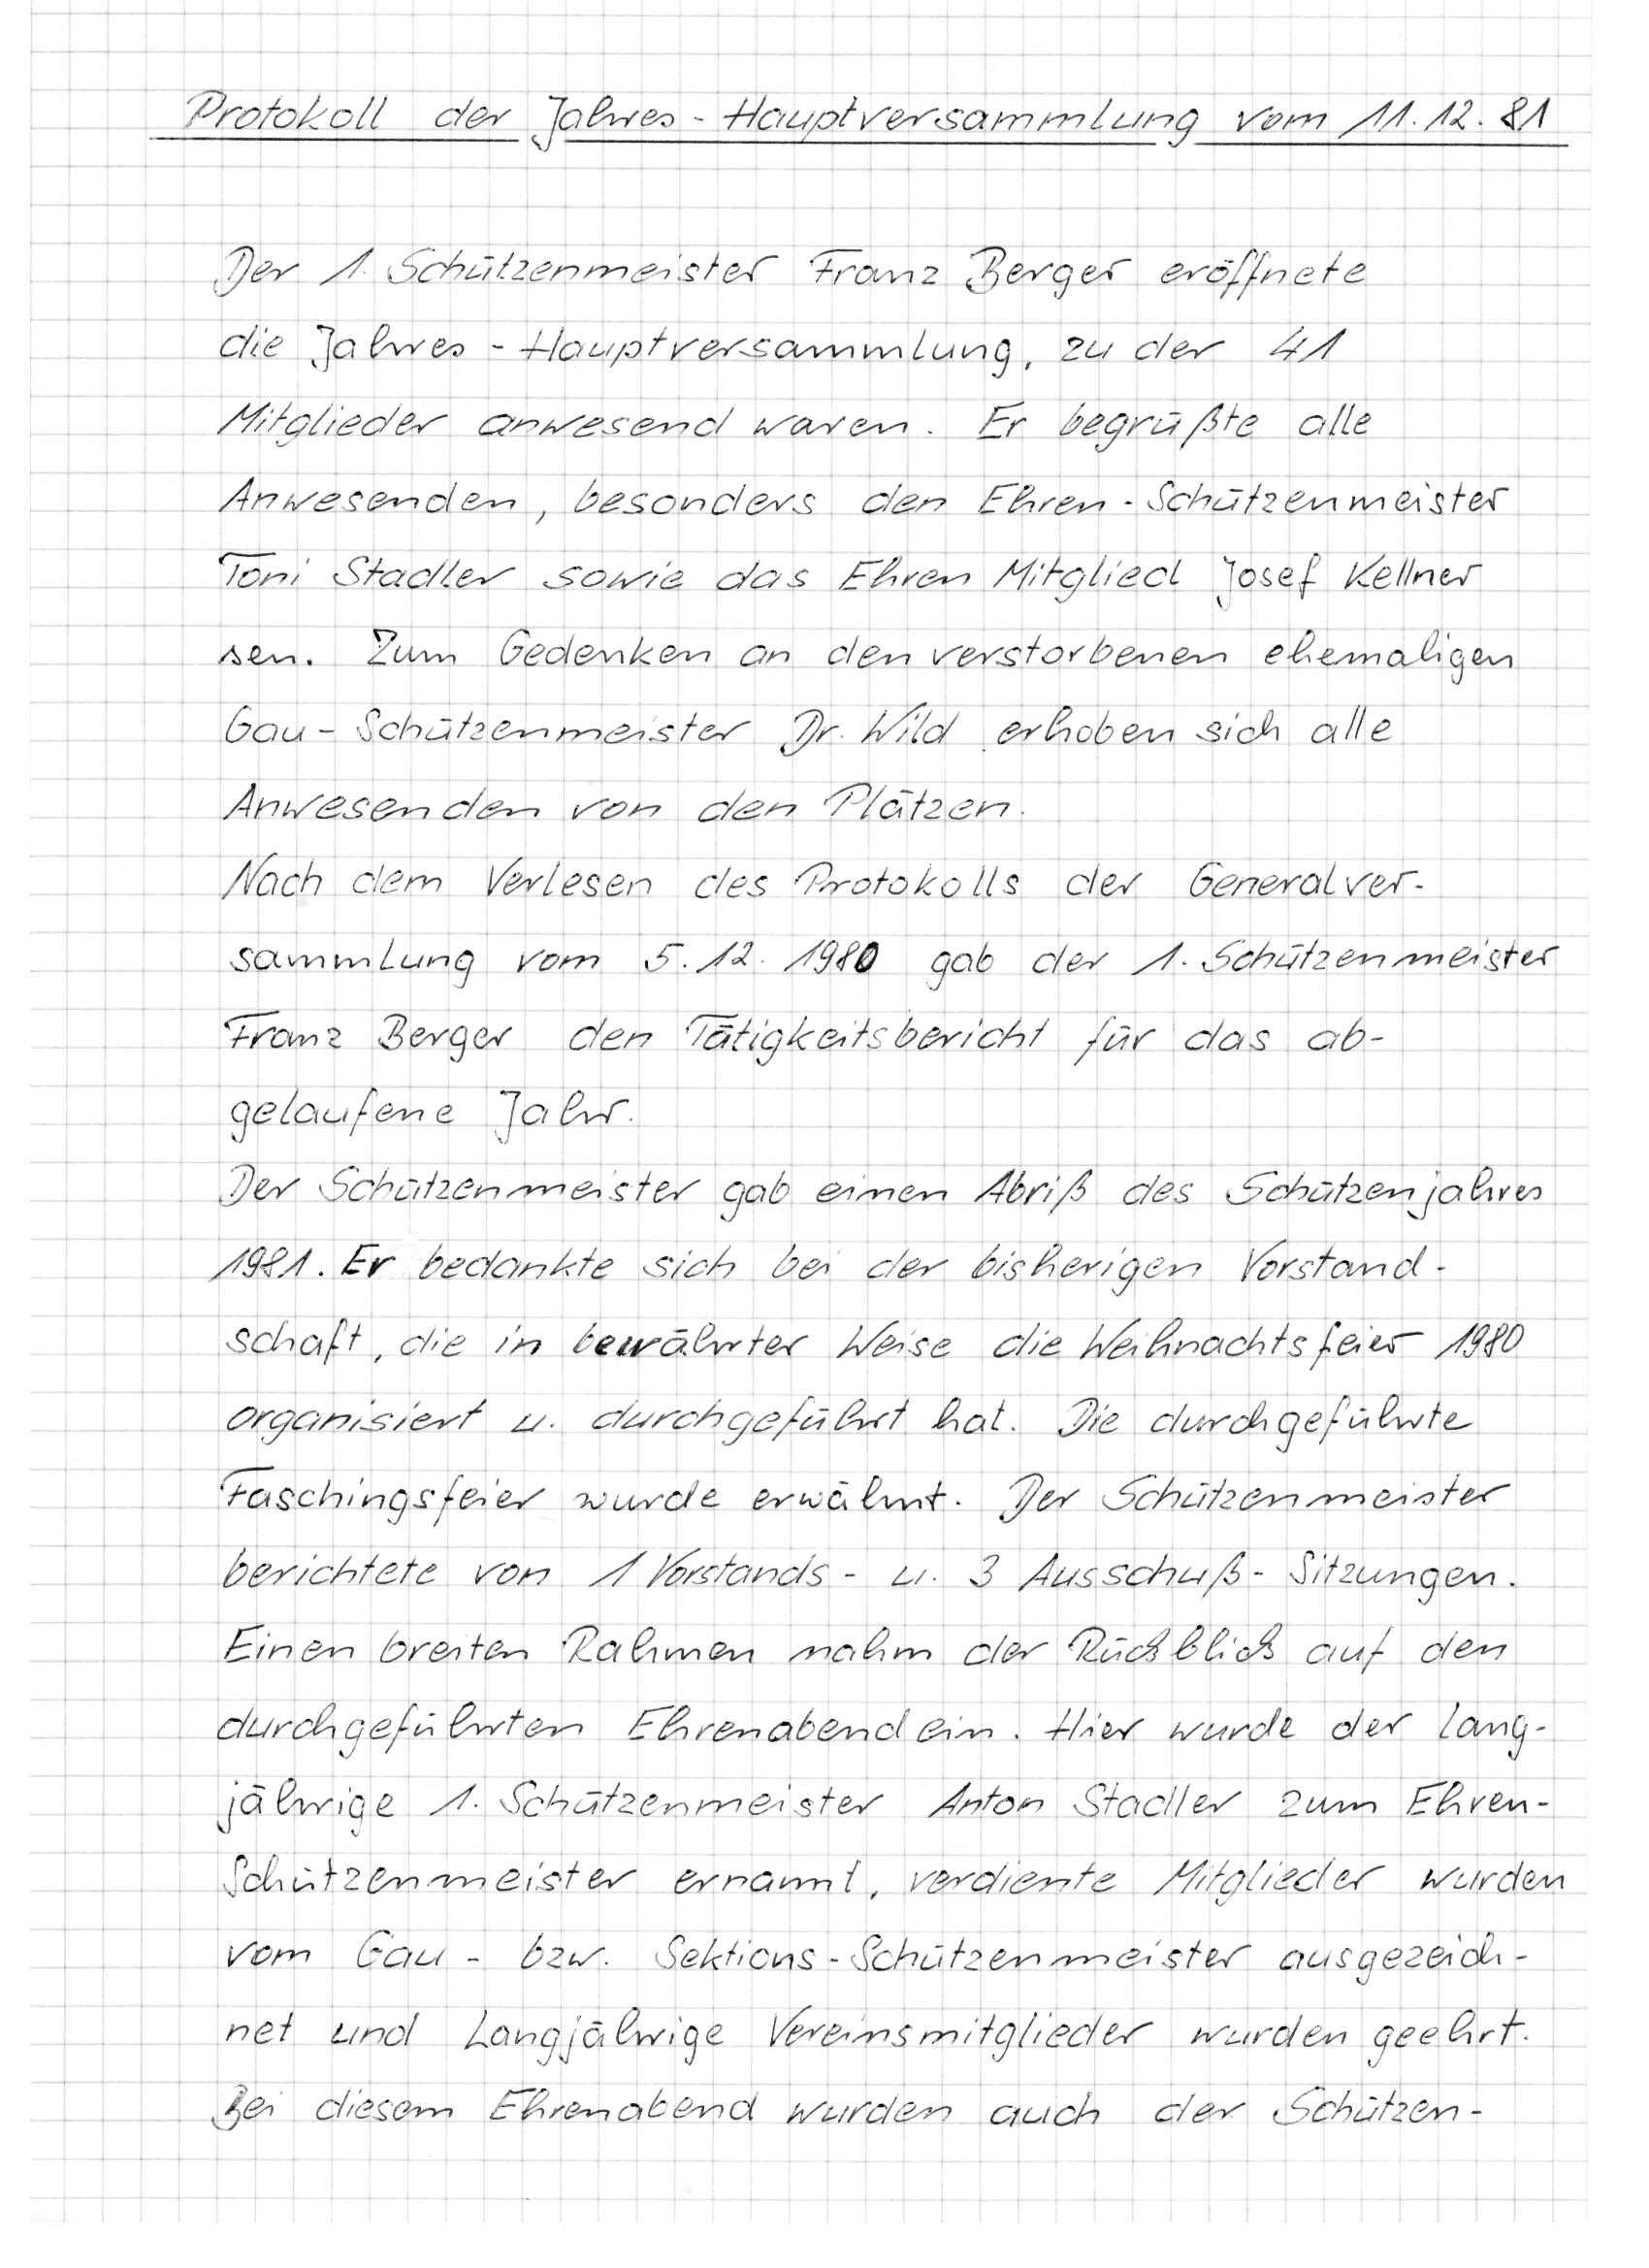 Protokoll der Jahres-Hauptversammlung vom 11.12.81
Der 1. Schützenmeister Franz Berger eröffnete
die Jahres-Hauptversammlung, zu der 41
Mitglieder anwesend waren. Er begrüßte alle
Anwesenden, besonders den Ehren-Schützenmeister
Toni Stadler sowie das Ehren Mitglied Josef Kellner
sen. Zum Gedenken an den verstorbenen ehemaligen
Gau-Schützenmeister Dr. Wild erhoben sich alle
Anwesenden von den Plätzen.
Nach dem Verlesen des Protokolls der Generalver-
sammlung vom 5.12.1980 gab der 1. Schützenmeister
Franz Berger den Tätigkeitsbericht für das ab-
gelaufene Jahr.
Der Schützenmeister gab einen Abriß des Schützenjahres
1981. Er bedankte sich bei der bisherigen Vorstand-
schaft, die in bewährter Weise die Weihnachtsfeier 1980
organisiert u. durchgeführt hat. Die durchgeführte
Faschingsfeier wurde erwähnt. Der Schützenmeister
berichtete von 1 Vorstands- u. 3 Ausschuß-Sitzungen.
Einen breiten Rahmen nahm der Rückblick auf den
durchgeführten Ehrenabend ein. Hier wurde der lang-
jährige 1. Schützenmeister Anton Stadler zum Ehren-
Schützenmeister ernannt, verdiente Mitglieder wurden
vom Gau- bzw. Sektions-Schützenmeister ausgezeich-
net und langjährige Vereinsmitglieder wurden geehrt.
Bei diesem Ehrenabend wurden auch der Schützen-